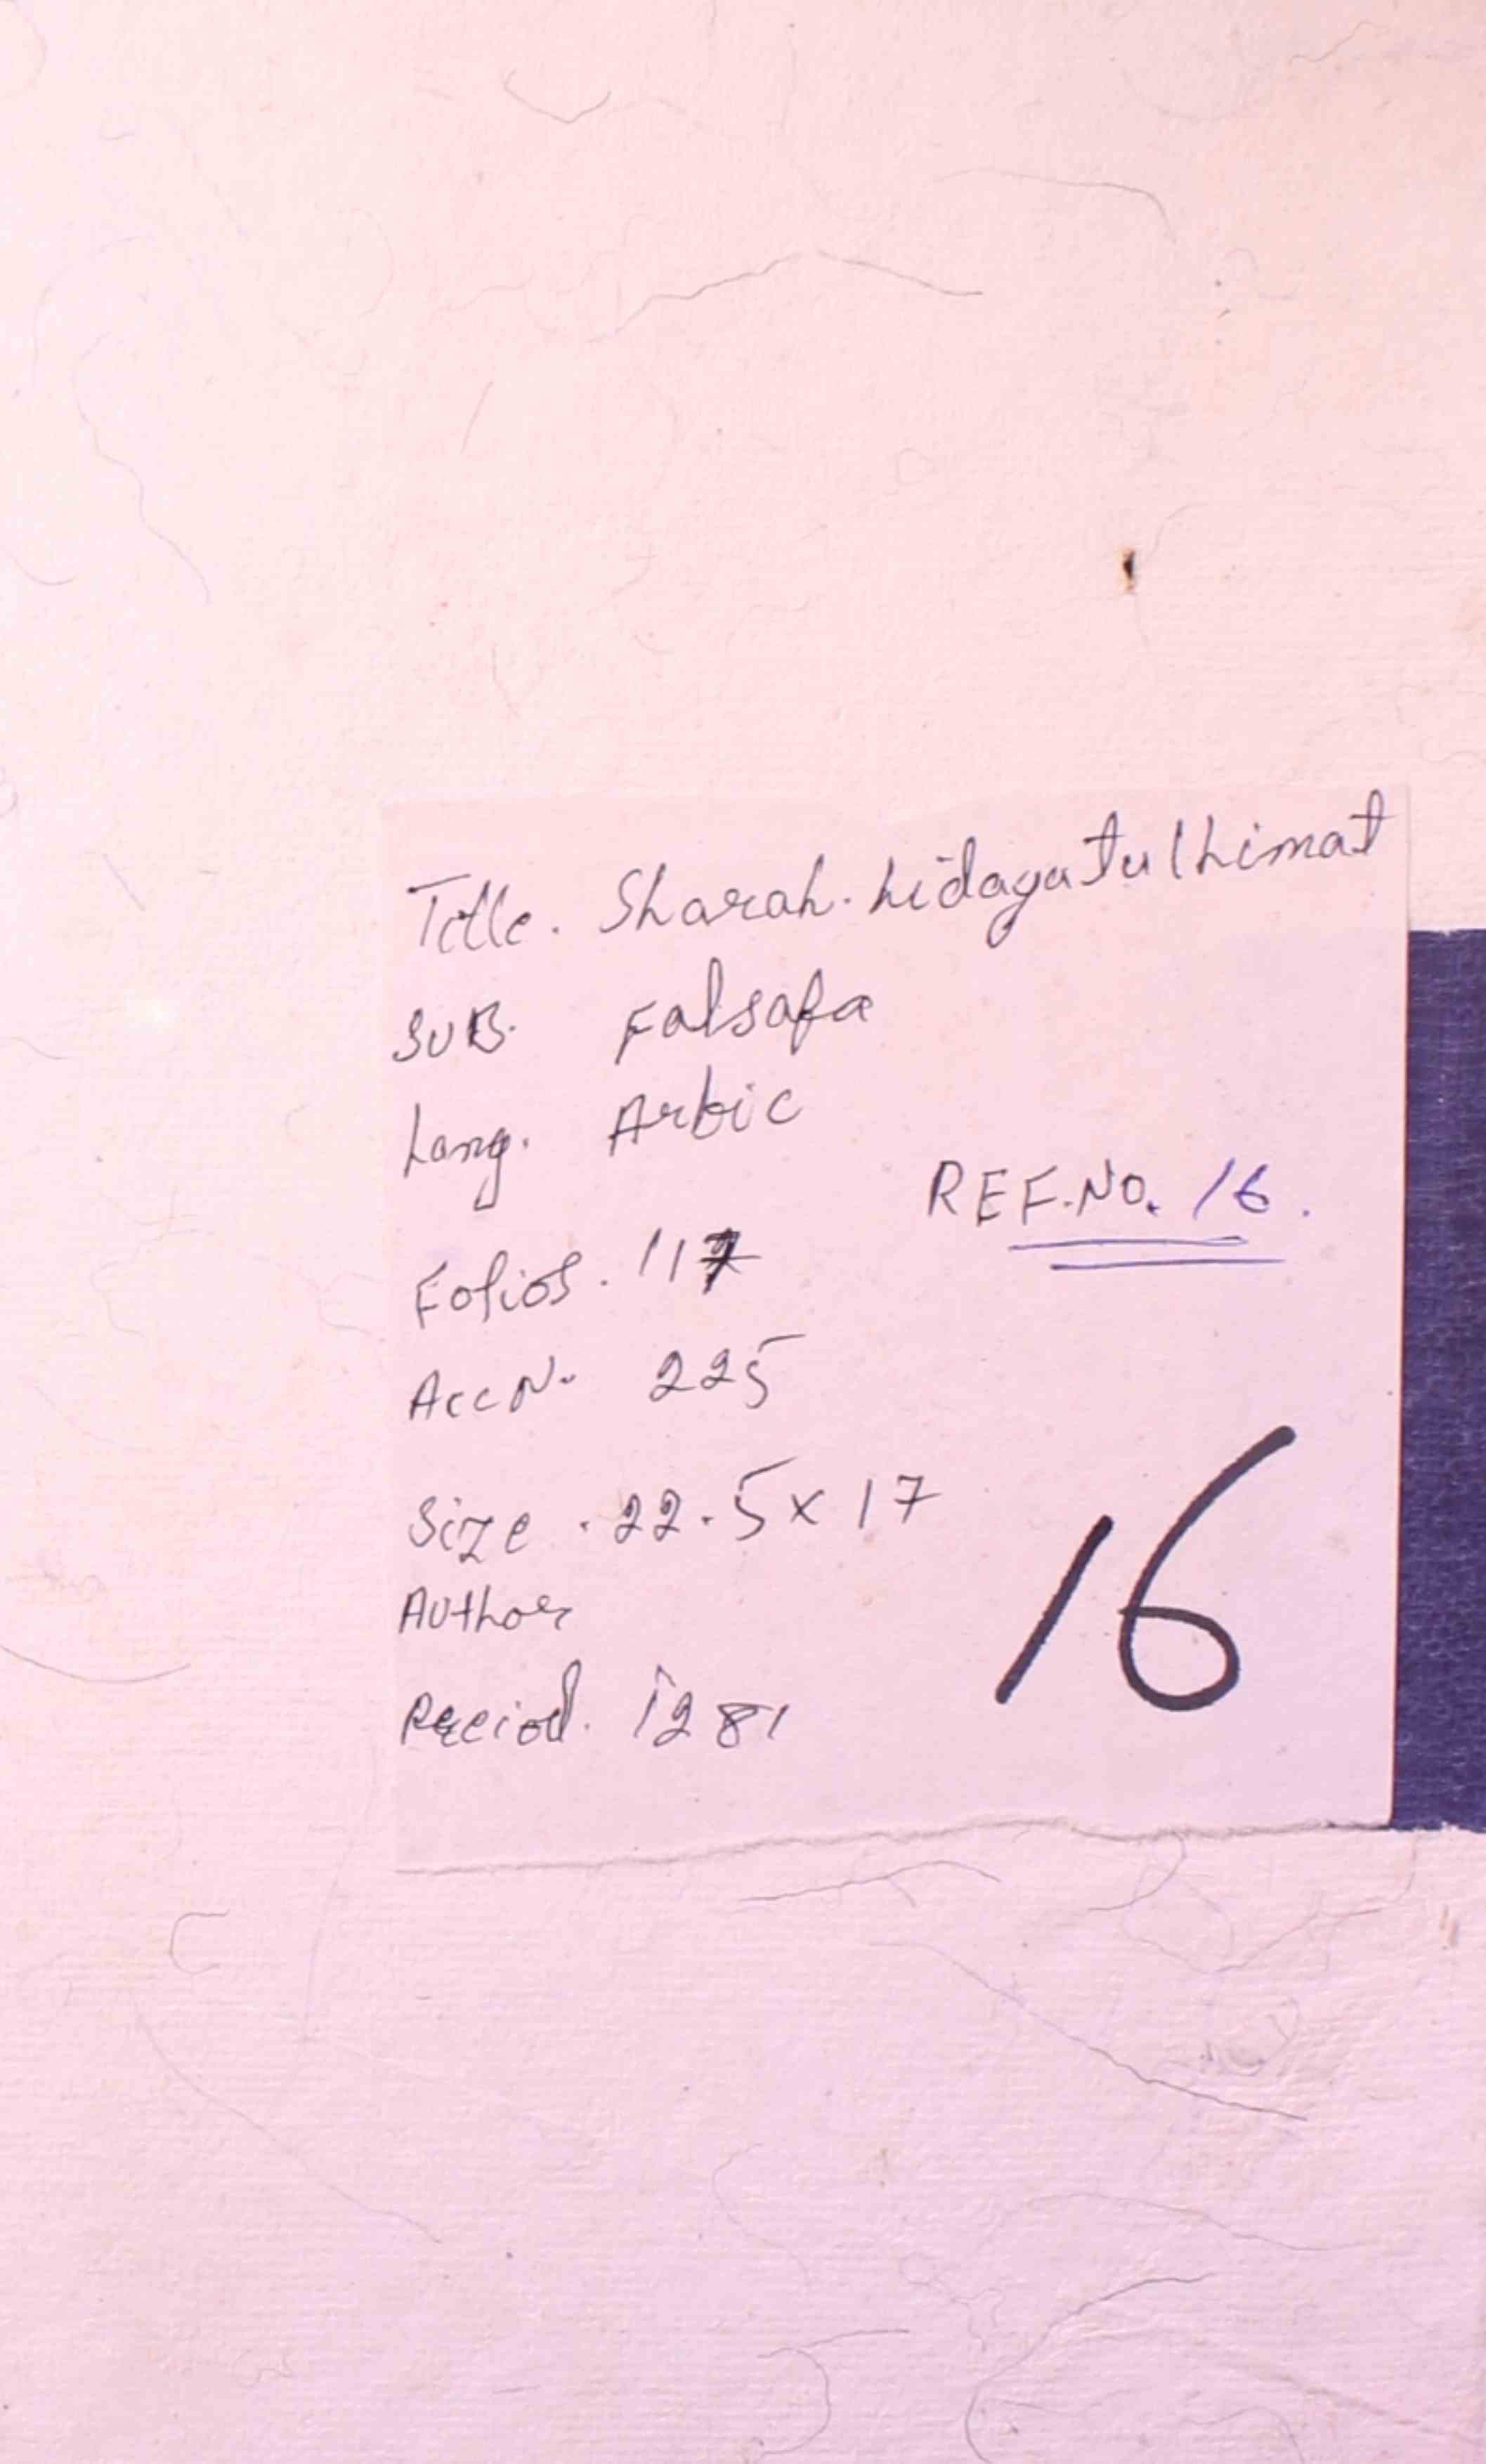 Title. Sharah. hidayatulhimat
SUB. Falsafa
Lang. Arbic
REF.NO. 16.
Folios. 117
Acc N. 225
Size . 22.5 x 17
Author
16
Period. 1281